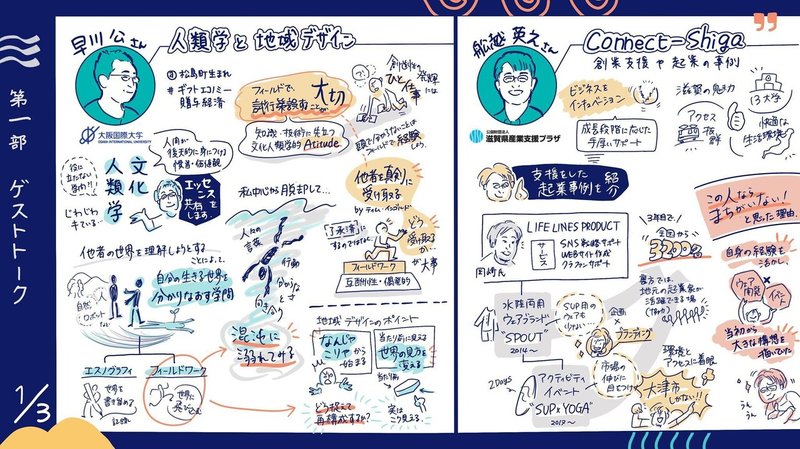 第一部 ゲストトーク
1/3
早川 公さん
人類学と地域デザイン
@松島町生まれ
#ギフトエコノミー
贈与経済
大阪国際大学
OSAKA INTERNATIONAL UNIVERSITY
フィールドで、
試行錯誤することが
大切
知識・技術に先立つ
文化人類学的 Atitude
創造性の発揮には
ひと仕事
頭で分からないことは
フィールドで経験しよう。
役に立たない
学問?!
じわじわ
キている…
文化
人類学
人間が
後天的に身につける
慣習・価値観
エッセンスを
共有
します。
他者の世界を理解しようとする
ことによって、
自分の生きる世界を
分かりなおす学問
人
自然
ロボット
など
エスノグラフィ
世界を
書き留める
記録
フィールドワーク
世界に
飛び込む
私中心から脱却して…
人々の
言葉
行動
分からなさと
向き合う
混沌に
溺れてみる
他者を真剣に
受け取る
by ティム・インゴルド
「了承済」に
するのではなく
どう
受け取るか、
が大事
フィールドワーク
互酬性・偶発的
地域デザインのポイント
なんじゃ
こりゃから
始まる
当たり前に見える
世界の見方を
変える
当たり前
どう捉えて
再構成するか?
実は
こう見える。
船越 英之さん
Connect-Shiga
創業支援や起業の事例
公益財団法人
滋賀県産業支援プラザ
ビジネスを
インキュベーション
成長段階に応じた
手厚いサポート
滋賀の魅力
13大学
アクセス
抜群
快適な
生活環境
支援をした
起業事例を紹介
LIFE LINES PRODUCT
サービス
SNS戦略サポート
WEBサイト作成
クラファンサポート
岡崎さん
3年目で、
全国から
3200名
水陸両用
ウェアブランド
"SPOUT"
2014〜
SUP用の
ウェアも
少ない…
企画
ブランディング
裏方では、
地元の起業家が
活躍できる場
2Days
アクティビティ
イベント
"SUP×YOGA"
2017〜
市場の
伸びに
目をつけ
環境と
アクセスに着眼
大津市
しかない!!
この人なら
まちがいない!
と思った理由。
自身の経験を
活かし、
ウェア
開発
イベント
当初から
大きな構想を
描いていた
うん
うん